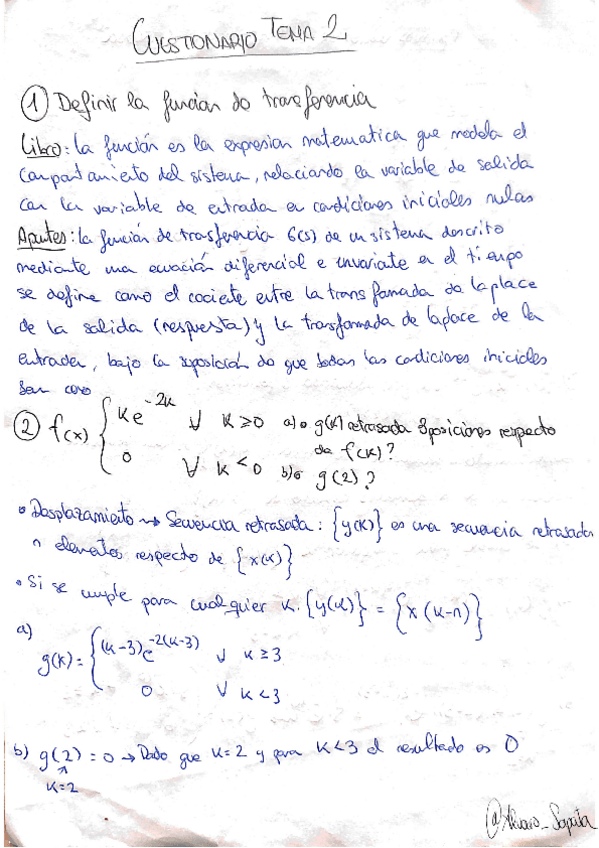 CUESTIONARIO TEMA 2
① Definir la funcion do transferencia
Libro: La función es la expresion matematica que modela el
comportamiento del sistema, relaciando la variable de salida
con la variable de entrada en condiciones iniciales nulas
Apuntes: la función de trasferencia G(s) de un sistema descrito
mediante una ecuación diferencial e invariante en el tiempo
se define como el cociente entre la transformada de laplace
de la salida (respuesta) y la transformada de laplace de la
entrada, bajo la suposición do que todas las condiciones iniciales
son cero
② f(x) { ke^{-2k} ∀ k≥0 a) ∘ g(k) retrasada 3 posiciones respecto
de f(k)?
0 ∀ k<0 b) ∘ g(2)?
• Desplazamiento → Secuencia retrasada: {y(k)} es una secuencia retrasada
n elementos respecto de {x(k)}
• Si se cumple para cualquier k. {y(k)} = {x(k-n)}
a)
g(k) = { (k-3)e^{-2(k-3)} ∀ k≥3
0 ∀ k<3
b) g(2) = 0 → Dado que k=2 y para k<3 el resultado es 0
↑
k=2
@Alvaro_Sapata